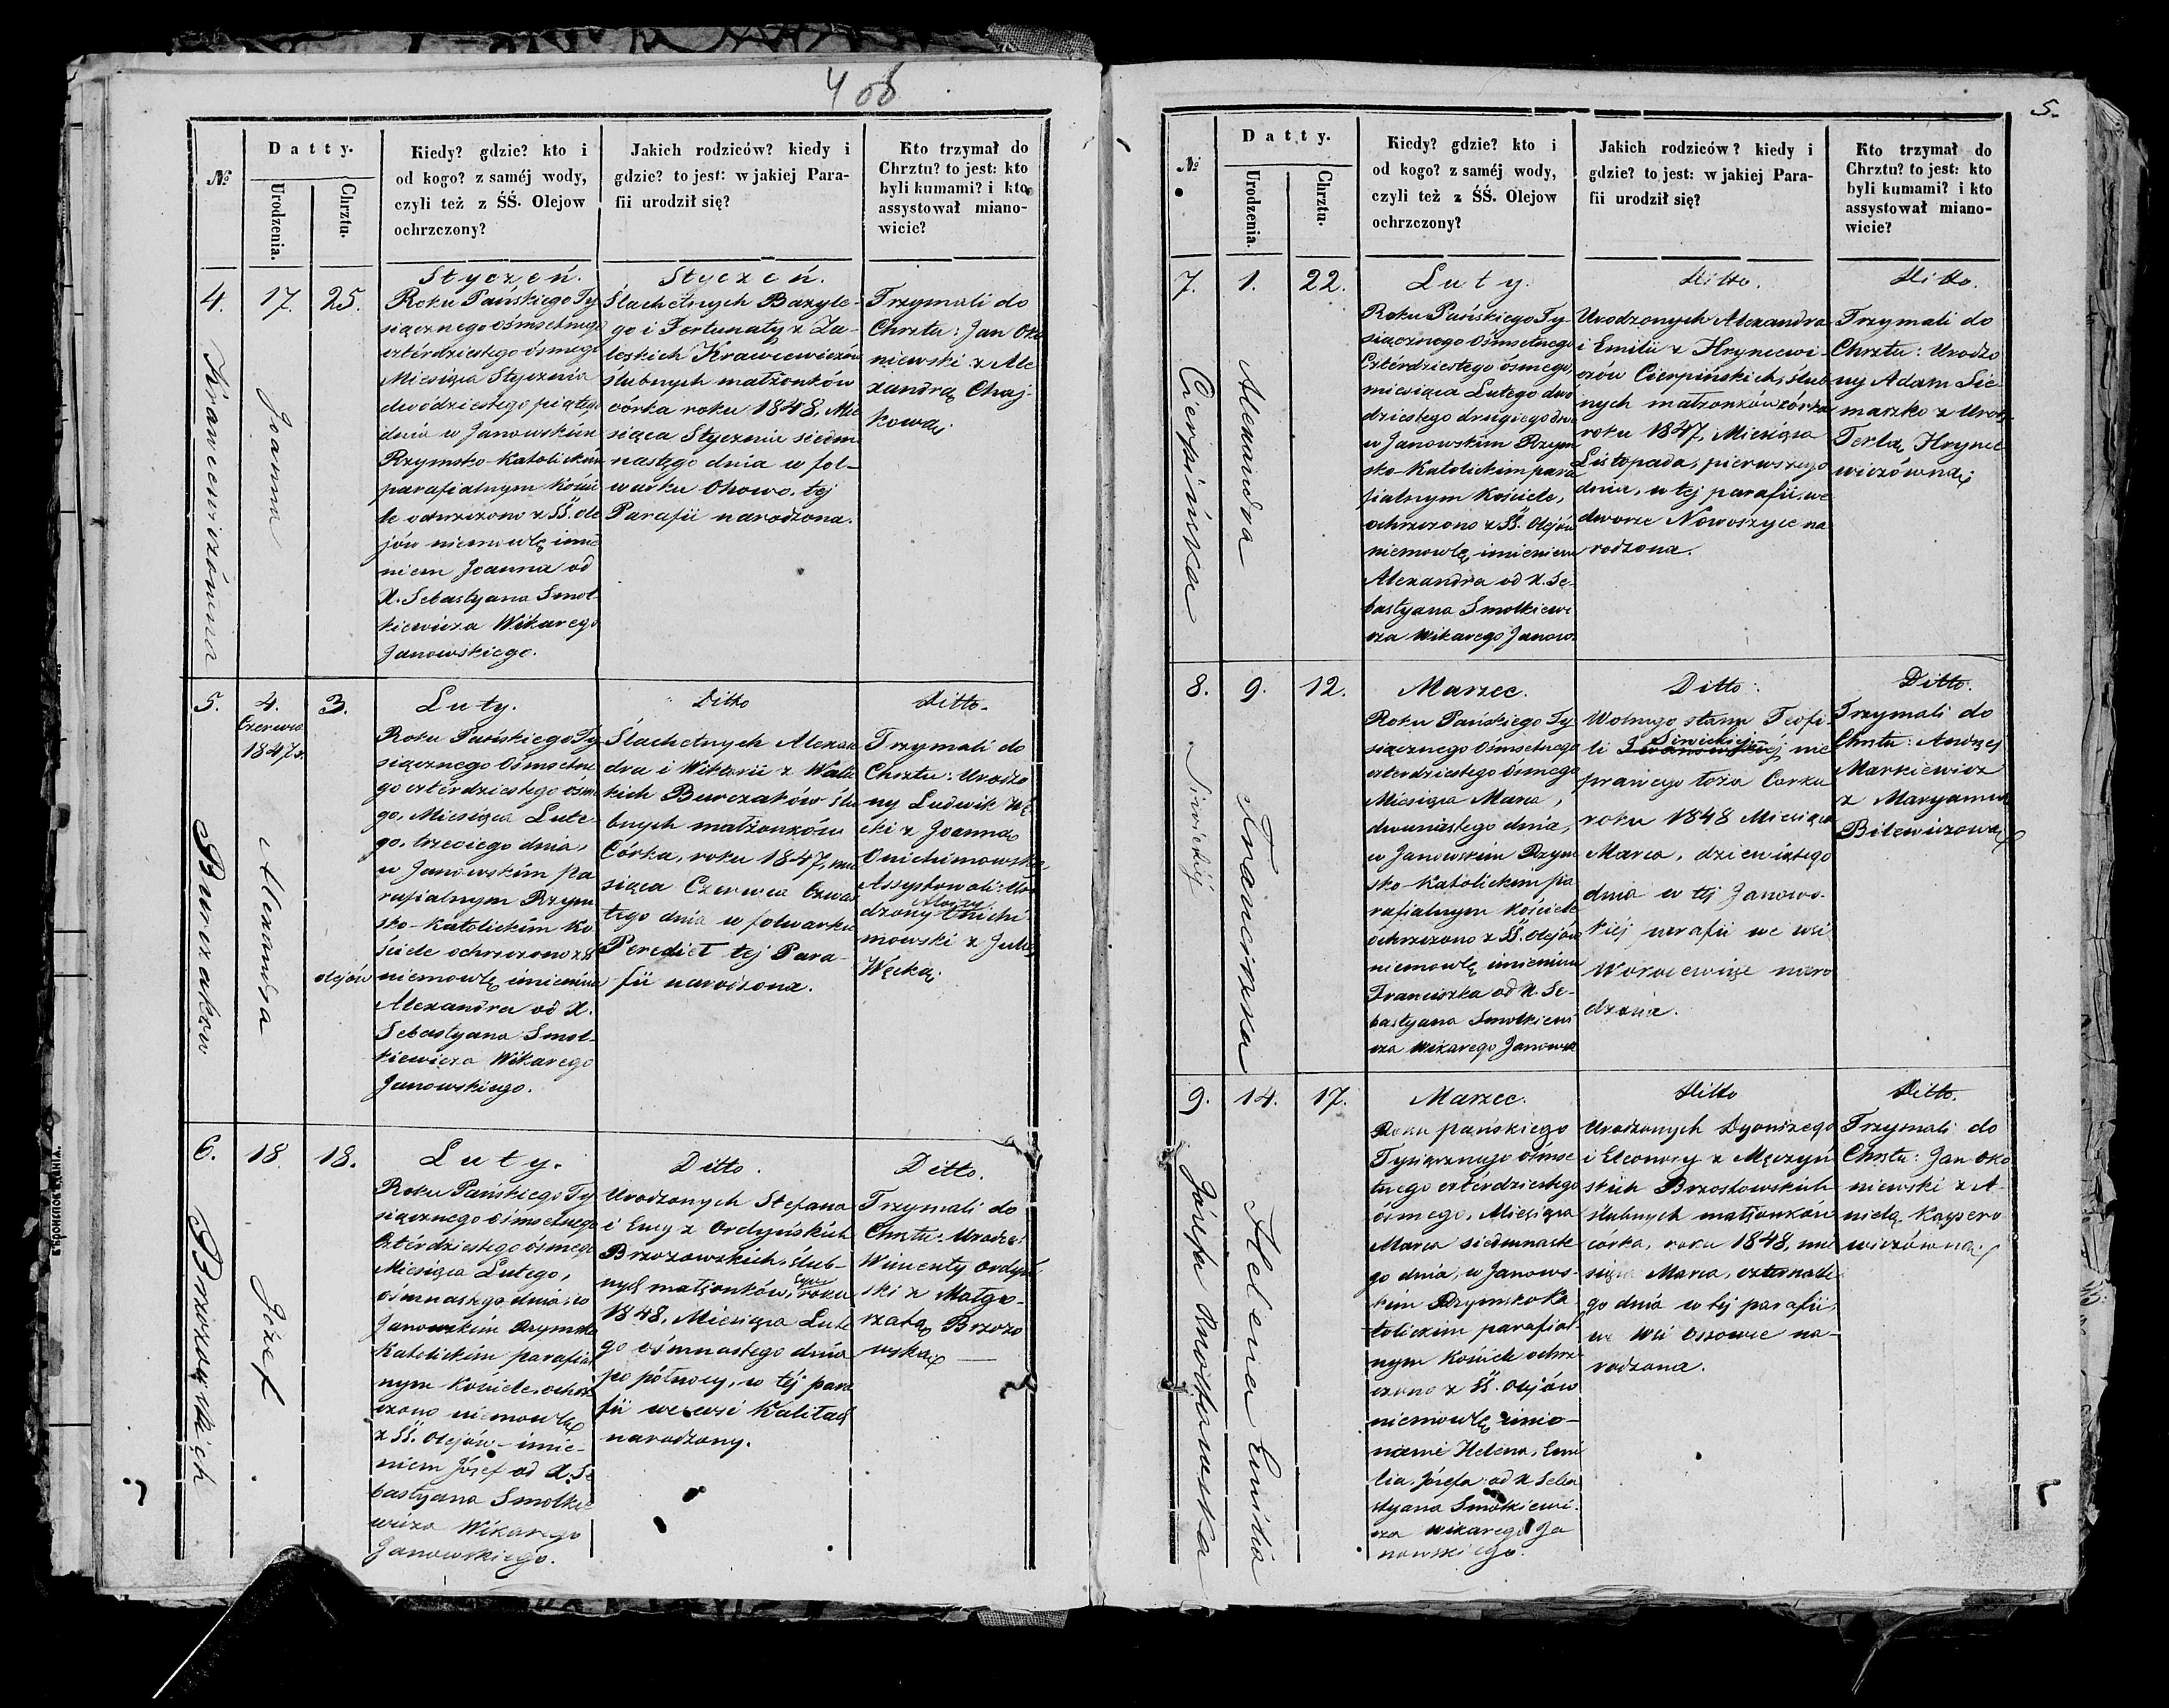 4 08
№
Datty.
Urodzenia.
Chrztu.
Kiedy? gdzie? kto i
od kogo? z saméj wody,
czyli też z ŚŚ. Olejow
ochrzczony?
Jakich rodziców? kiedy i
gdzie? to jest: w jakiej Para-
fii urodził się?
Kto trzymał do
Chrztu? to jest: kto
byli kumami? i kto
assystował miano-
wicie?
4.
Krawcewiczówna
17.
Joanna
25.
Styczeń.
Roku Pańskiego Ty
siącznego ośmsetnego
cztérdziestego ósmego
Miesiąca Stycznia
dwódziestego piątego
dnia w Janowskim
Rzymsko-Katolickim
parafialnym Kości
le ochrzczono z ŚŚ. Ole
jów niemowlę imie
niem Joanna od
X. Sebastyana Smoł-
kiewicza Wikarego
Janowskiego.
Styczeń.
Ślachetnych Bazyle-
go i Fortunaty z Za-
leskich Krawcewiczów
ślubnych małżonków
córka roku 1848, Mie
siąca Stycznia siedm
nastego dnia w fol-
warku Ohowo, tej
Parafii narodzona.
Trzymali do
Chrztu: Jan Oko
niewski z Ale
xandrą Chaj-
kową.
5.
Burczaków
4.
Czerwca
1847 r.
Alexandra
3.
Luty.
Roku Pańskiego Ty
siącznego Ośmsetne
go cztérdziestego ósme
go, Miesiąca Lute-
go, trzeciego dnia,
w Janowskim pa
rafialnym Rzym
sko-Katolickim Ko
ściele ochrzczono z ŚŚ
olejów niemowlę imieniem
Alexandra od X.
Sebastyana Smoł-
kiewicza Wikarego
Janowskiego.
Ditto
Ślachetnych Alexan
dra i Wiktorii z Wali
kich Burczaków ślu
bnych małżonków
Córka, roku 1847, mie
siąca Czerwca Czwar
tego dnia w folwarku
Perediel tej Para-
fii narodzona.
Ditto.
Trzymali do
Chrztu: Urodzo
ny Ludwik Wę
cki z Joanną
Onichimowską,
Assystowali: Uro
dzony Aloizy Onichi
mowski z Julią
Węcką.
6.
Brzozowskich
18.
Józef
18.
Luty.
Roku Pańskiego Ty
siącznego ośmsetnego
Cztérdziestego ósmego
Miesiąca Lutego,
ośmnastego dnia, w
Janowskim Rzymsko
Katolickim parafial
nym Kościele, ochrz
czono niemowlę
z ŚŚ. Olejów - imie-
niem Józef od X. Se
bastyana Smołkie
wicza Wikarego
Janowskiego.
Ditto.
Urodzonych Stefana
i Ewy z Ordyńskich
Brzozowskich, ślub-
nych małżonków, syn roku
1848, Miesiąca Lute
go ośmnastego dnia
po północy, w téj para
fii we wsi Kalitach
narodzony.
Ditto.
Trzymali do
Chrztu: Urodzo:
Wincenty Ordyń
ski z Małgo-
rzatą Brzozo
wską.
5.
№
Datty.
Urodzenia.
Chrztu.
Kiedy? gdzie? kto i
od kogo? z saméj wody,
czyli też z ŚŚ. Olejow
ochrzczony?
Jakich rodziców? kiedy i
gdzie? to jest: w jakiej Para-
fii urodził się?
Kto trzymał do
Chrztu? to jest: kto
byli kumami? i kto
assystował miano-
wicie?
7.
Cierpińska
1.
Alexandra
22.
Luty.
Roku Pańskiego Ty-
siącznego Ośmsetnego
Cztérdziestego ósmego,
miesiąca Lutego dwó
dziestego drugiego dnia
w Janowskim Rzym
sko-Katolickim para
fialnym Kościele,
ochrzczono z ŚŚ. Olejów
niemowlę imieniem
Alexandra od X. Se-
bastyana Smołkiewi
cza Wikarego Janow.
Ditto.
Urodzonych Alexandra
i Emilii z Hryncewi
czów Cierpińskich, ślub
nych małżonków córka
roku 1847, Miesiąca
Listopada, pierwszego
dnia, w tej parafii, we
dworze Nowoszyce na
rodzona.
Ditto.
Trzymali do
Chrztu: Urodzo
ny Adam Sie
maszko z Urodz.
Teklą Hrynce
wiczówną.
8.
Siwickiéj
9.
Franciszka
12.
Marzec.
Roku Pańskiego Ty
siącznego Ośmsetnego
czterdziestego ósmego
Miesiąca Marca,
dwunastego dnia,
w Janowskim Rzym
sko-Katolickim pa
rafialnym kościele
ochrzczono z ŚŚ. olejów
niemowlę imieniem
Franciszka od X. Se-
bastyana Smołkiewi
cza Wikarego Janows
Ditto.
Wolnego stanu Teofi-
li Iwanowskiéj Siwickiej nie
prawego łoża Corka
roku 1848 Miesiąca
Marca, dziewiątego
dnia w tej Janows-
kiéj parafii we wsi
Worocewicze naro
dzona.
Ditto.
Trzymali do
Chrztu: Andrzej
Markiewicz
z Maryanną
Bilewiczową
9.
Józefa Brzostowska
14.
Helena Emilia
17.
Marzec.
Roku pańskiego
Tysiącznego ośmse
tnego cztérdziestego
ósmego, Miesiąca
Marca siedmnaste
go dnia, w Janows-
kim Rzymsko Ka
tolickim parafial
nym Kościele ochrz-
czono z ŚŚ. Olejów
niemowlę imio-
nami Helena, Emi
lia, Józefa od X Seba
styana Smołkiewi-
cza wikarego Ja
nowskiego.
Ditto
Urodzonych Dyonizego
i Eleonory z Męczyń
skich Brzostowskich
ślubnych małżonków
córka, roku 1848, mie
siąca Marca, czternaste
go dnia w tej parafii,
we wsi Ossowce na-
rodzona.
Ditto.
Trzymali do
Chrztu: Jan Oko
niewski z A-
nielą Kaspero
wiczówną.